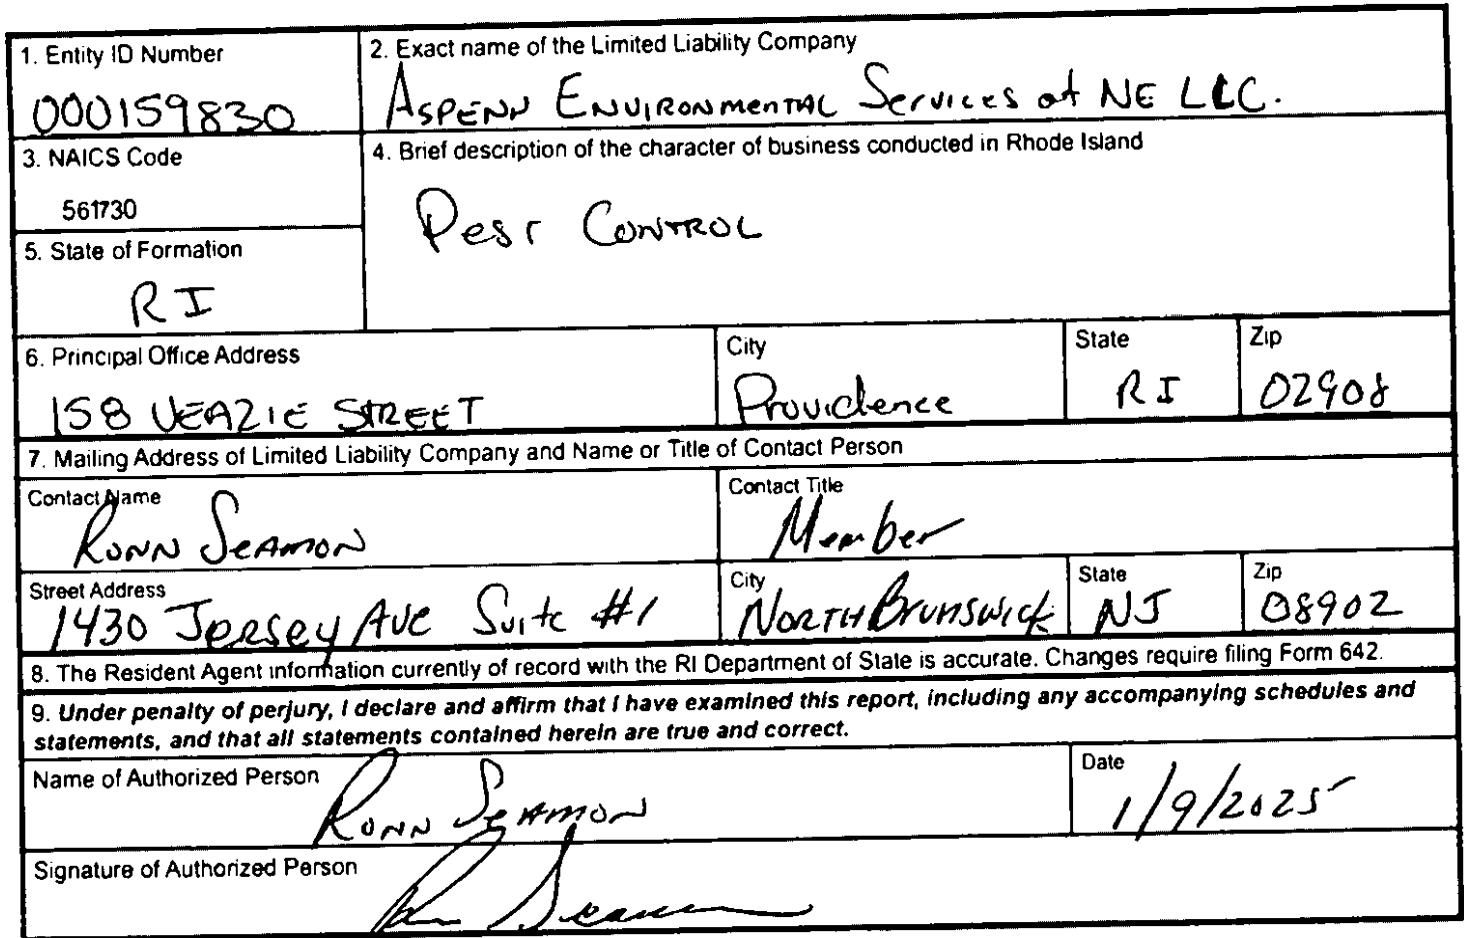 1. Entity ID Number
000159830
2. Exact name of the Limited Liability Company
ASPENN ENVIRONMENTAL Services of NE LLC.
3. NAICS Code
561730
4. Brief description of the character of business conducted in Rhode Island
Pest CONTROL
5. State of Formation
RI
6. Principal Office Address
158 VEAZIE STREET
City
Providence
State
RI
Zip
02908
7. Mailing Address of Limited Liability Company and Name or Title of Contact Person
Contact Name
RONN SEAMON
Contact Title
Member
Street Address
1430 Jersey Ave Suite #1
City
NORTH Brunswick
State
NJ
Zip
08902
8. The Resident Agent information currently of record with the RI Department of State is accurate. Changes require filing Form 642.
9. Under penalty of perjury, I declare and affirm that I have examined this report, including any accompanying schedules and
statements, and that all statements contained herein are true and correct.
Name of Authorized Person
RONN SEAMON
Date
1/9/2025
Signature of Authorized Person